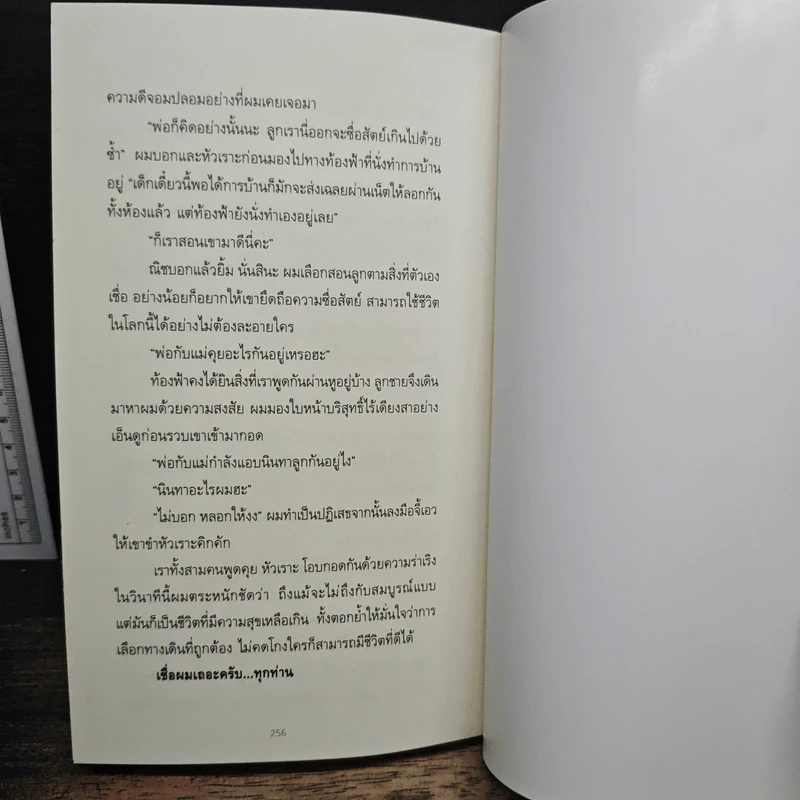 ความดีจอมปลอมอย่างที่ผมเคยเจอมา
"พ่อก็คิดอย่างนั้นนะ ลูกเรานี่ออกจะซื่อสัตย์เกินไปด้วย
ซ้ำ" ผมบอกและหัวเราะก่อนมองไปทางท้องฟ้าที่นั่งทำการบ้าน
อยู่ "เด็กเดี๋ยวนี้พอได้การบ้านก็มักจะส่งเฉลยผ่านเน็ตให้ลอกกัน
ทั้งห้องแล้ว แต่ท้องฟ้ายังนั่งทำเองอยู่เลย"
"ก็เราสอนเขามาดีนี่คะ"
ณิชบอกแล้วยิ้ม นั่นสินะ ผมเลือกสอนลูกตามสิ่งที่ตัวเอง
เชื่อ อย่างน้อยก็อยากให้เขายึดถือความซื่อสัตย์ สามารถใช้ชีวิต
ในโลกนี้ได้อย่างไม่ต้องละอายใคร
"พ่อกับแม่คุยอะไรกันอยู่เหรอฮะ"
ท้องฟ้าคงได้ยินสิ่งที่เราพูดกันผ่านหูอยู่บ้าง ลูกชายจึงเดิน
มาหาผมด้วยความสงสัย ผมมองใบหน้าบริสุทธิ์ไร้เดียงสาอย่าง
เอ็นดูก่อนรวบเขาเข้ามากอด
"พ่อกับแม่กำลังแอบนินทาลูกกันอยู่ไง"
"นินทาอะไรผมฮะ"
"ไม่บอก หลอกให้งง" ผมทำเป็นปฏิเสธจากนั้นลงมือจี้เอว
ให้เขาขำหัวเราะคิกคัก
เราทั้งสามคนพูดคุย หัวเราะ โอบกอดกันด้วยความร่าเริง
ในวินาทีนี้ผมตระหนักชัดว่า ถึงแม้จะไม่ถึงกับสมบูรณ์แบบ
แต่มันก็เป็นชีวิตที่มีความสุขเหลือเกิน ทั้งตอกย้ำให้มั่นใจว่าการ
เลือกทางเดินที่ถูกต้อง ไม่คดโกงใครก็สามารถมีชีวิตที่ดีได้
เชื่อผมเถอะครับ...ทุกท่าน
256
inches
1
2
3
4